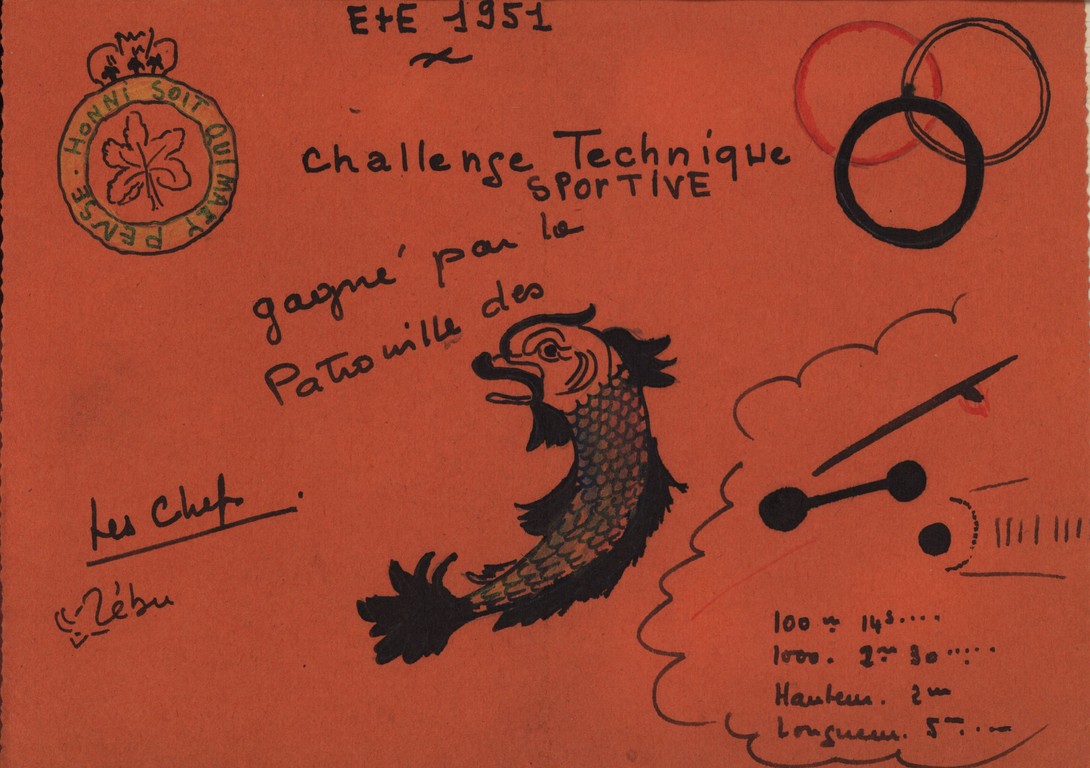 E+E 1951
HONNI SOIT QUI MALY PENSE.
Challenge Technique
SPORTIVE
gagné par la
Patrouille des
Les Chefs
Zébu
100 m 14s....
1000. 2m 30.....
Hauteur. 2m
Longueur. 5m...